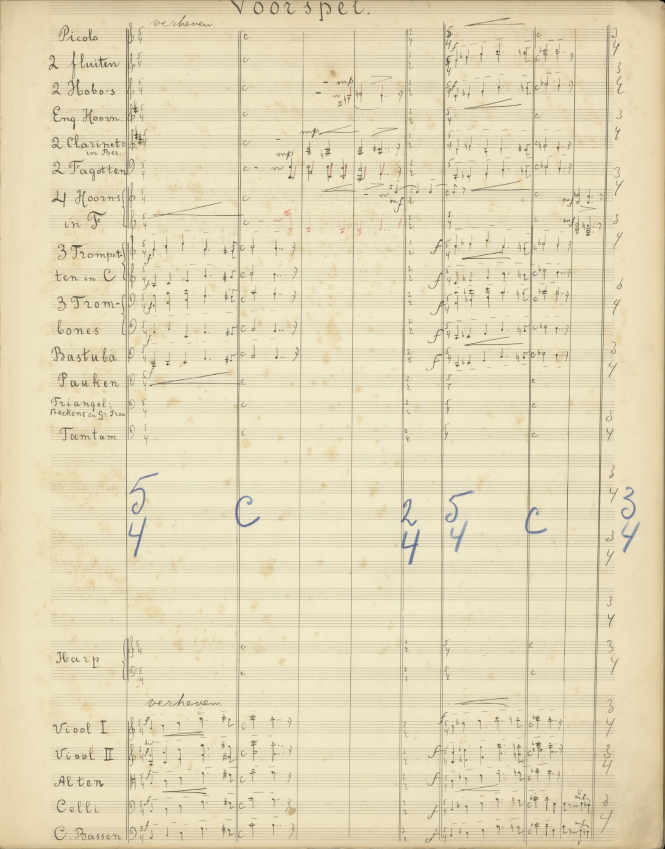 Voorspel.
verheven
Picolo
2 fluiten
2 Hobo's
mp
Eng Hoorn
2 Clarinet-
in Bes.
mp
2 Fagotten
mp
4 Hoorns
in F
mf
mf
3 Trompet-
ten in C
f
3 Trom-
bones
f
Bastuba
f
Pauken
Triangel,
Tamtam
5 C 2 5 C 3
4 4 4 4
Harp
verheven.
Viool I
Viool II
f
Alten
Celli
f
C. Bassen
f